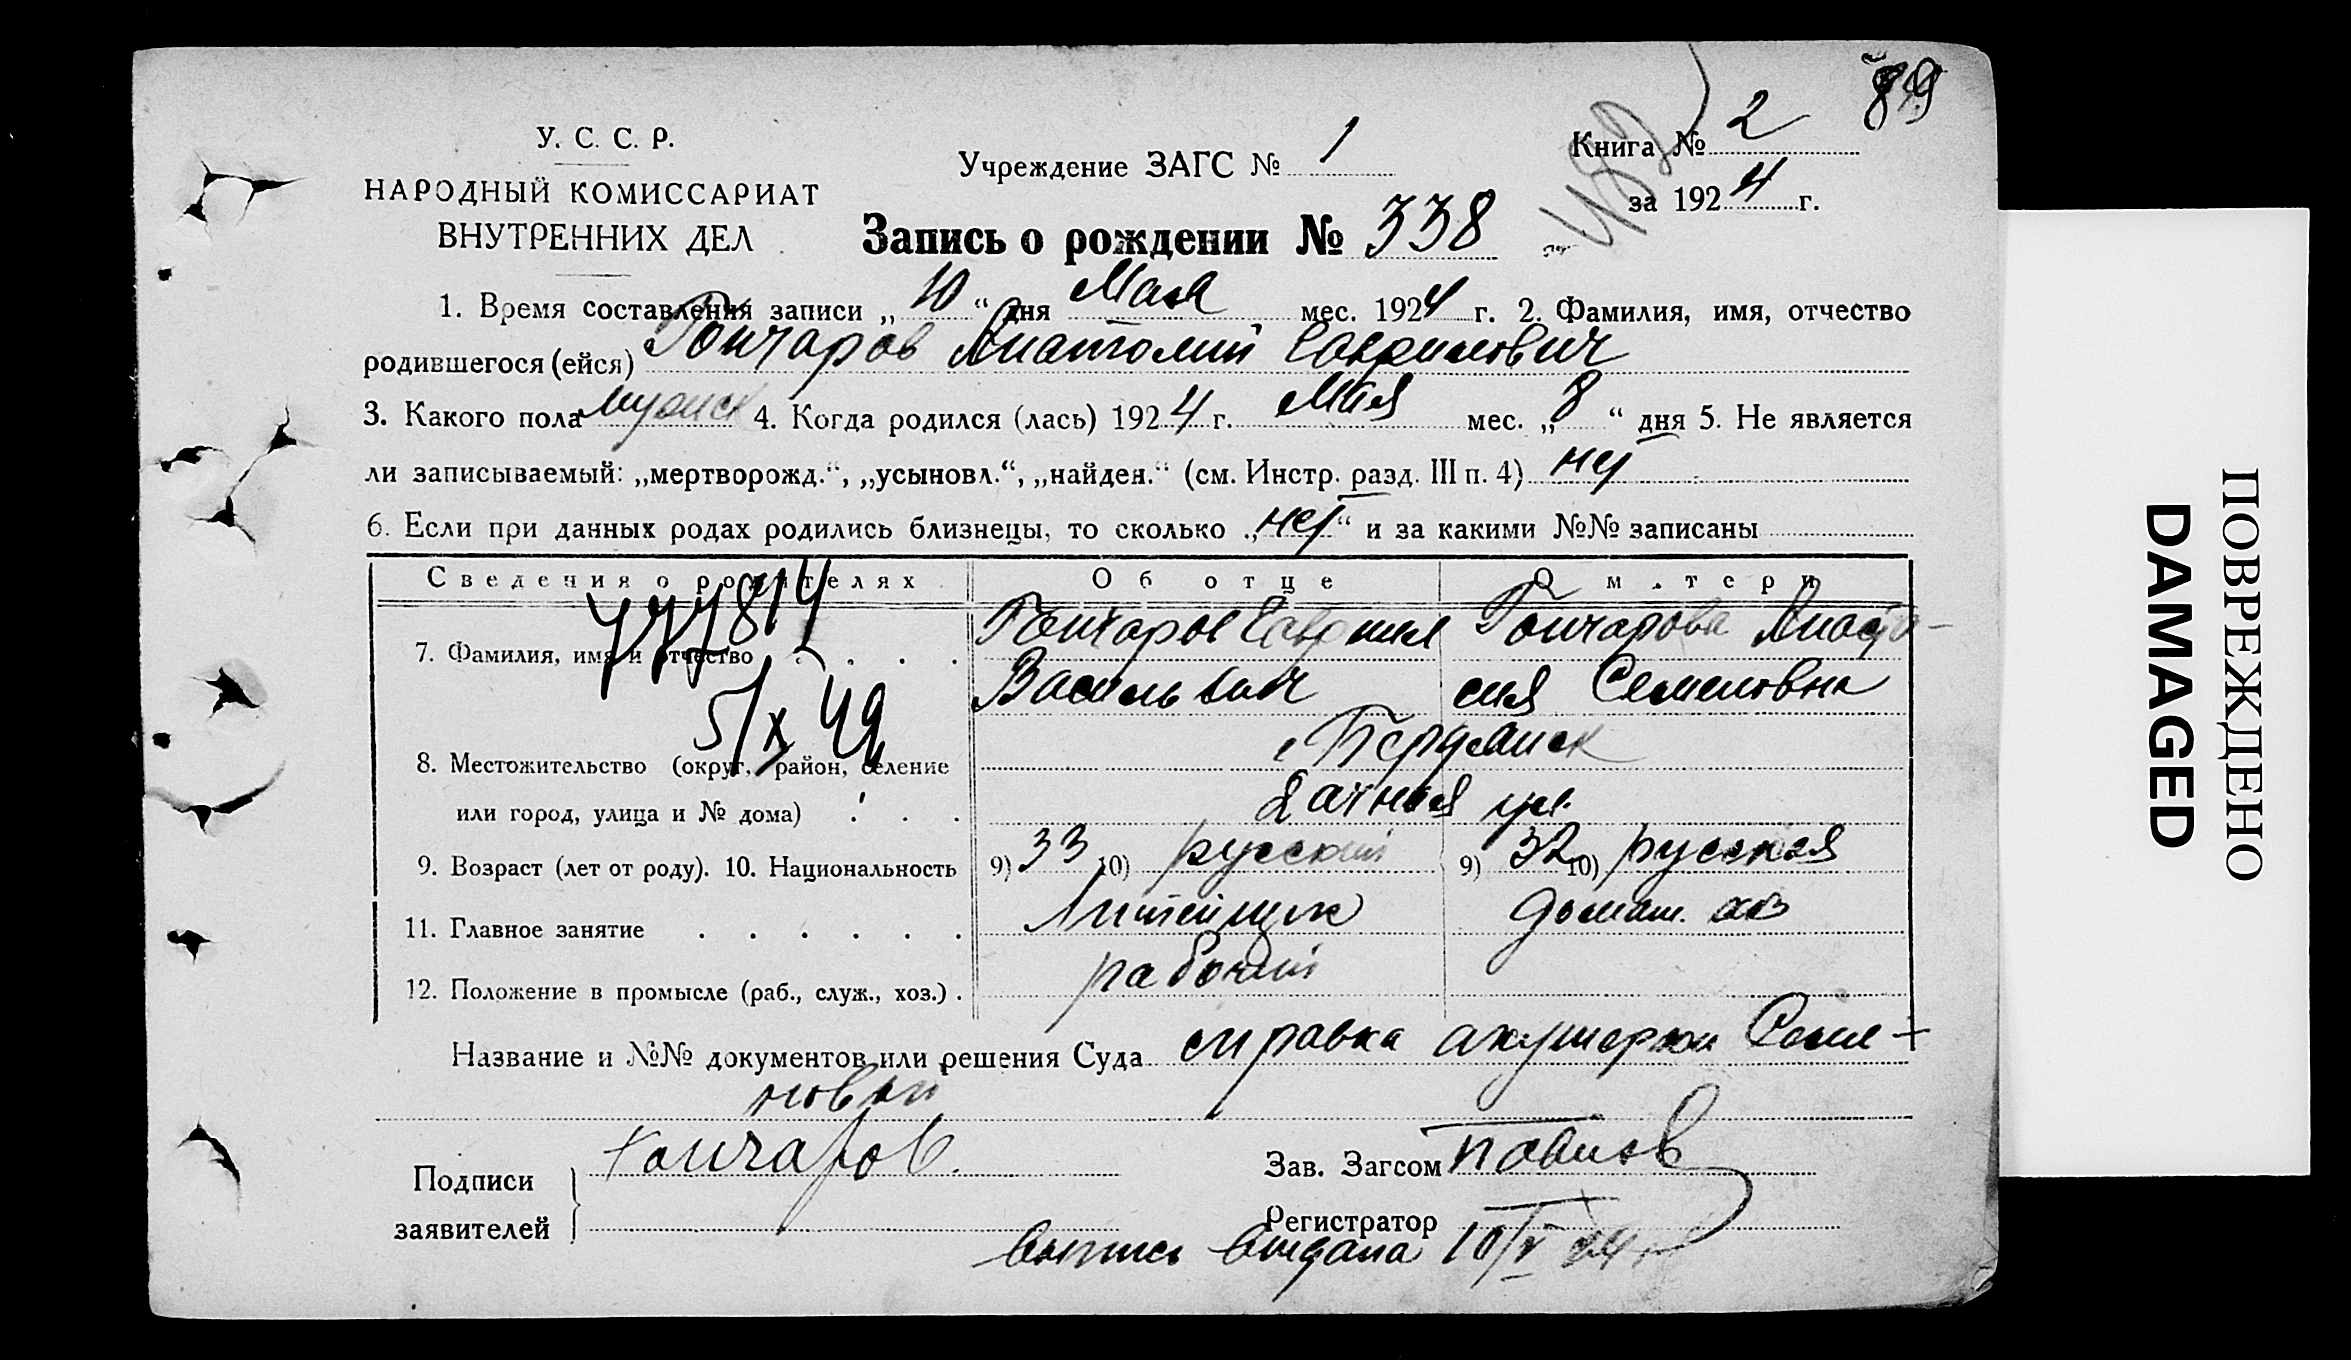 89
У. С. С. Р.
НАРОДНЫЙ КОМИССАРИАТ
ВНУТРЕННИХ ДЕЛ
Учреждение ЗАГС № 1
Книга № 2
за 1924 г.
Запись о рождении № 338
1. Время составления записи „10“ дня Мая мес. 1924 г. 2. Фамилия, имя, отчество
родившегося (ейся) Гончаров Анатолий Гаврилович
3. Какого пола мужск 4. Когда родился (лась) 1924 г. Мая мес. „8“ дня 5. Не является
ли записываемый: „мертворожд.“, „усыновл.“, „найден.“ (см. Инстр. разд. III п. 4) нет
6. Если при данных родах родились близнецы, то сколько „нет“ и за какими №№ записаны
Сведения о родителях Об отце О матери
7. Фамилия, имя и отчество Гончаров Гаврил Гончарова Анаста-
Васильевич сия Семеновна
5/X 49
8. Местожительство (округ, район, селение г Бердянск
или город, улица и № дома) Дачная ул.
9. Возраст (лет от роду). 10. Национальность 9) 33 10) русский 9) 32 10) русская
11. Главное занятие Литейщик домаш. хоз
12. Положение в промысле (раб., служ., хоз.) рабочий
Название и №№ документов или решения Суда справка акушерки Семе-
новой
Подписи
заявителей
Гончаров.
Зав. Загсом
Регистратор
выпись выдана 10/V 24 г
ПОВРЕЖДЕНО
DAMAGED